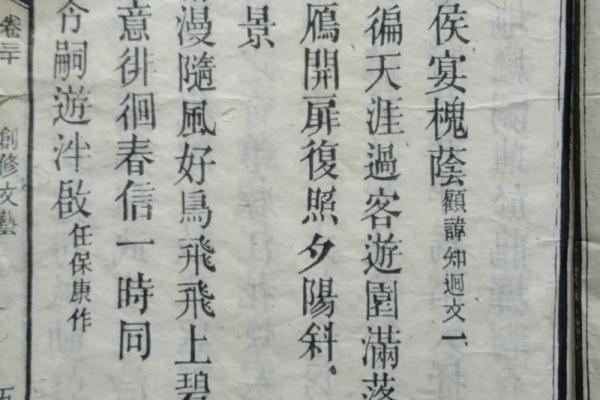 侯宴槐蔭顧諱知迴文一
徧天涯過客遊園滿落
鴈開扉復照夕陽斜
景
漫隨風好鳥飛飛上碧
意徘徊春信一時同
令嗣遊泮啟任保康作
卷三十 創修文藝